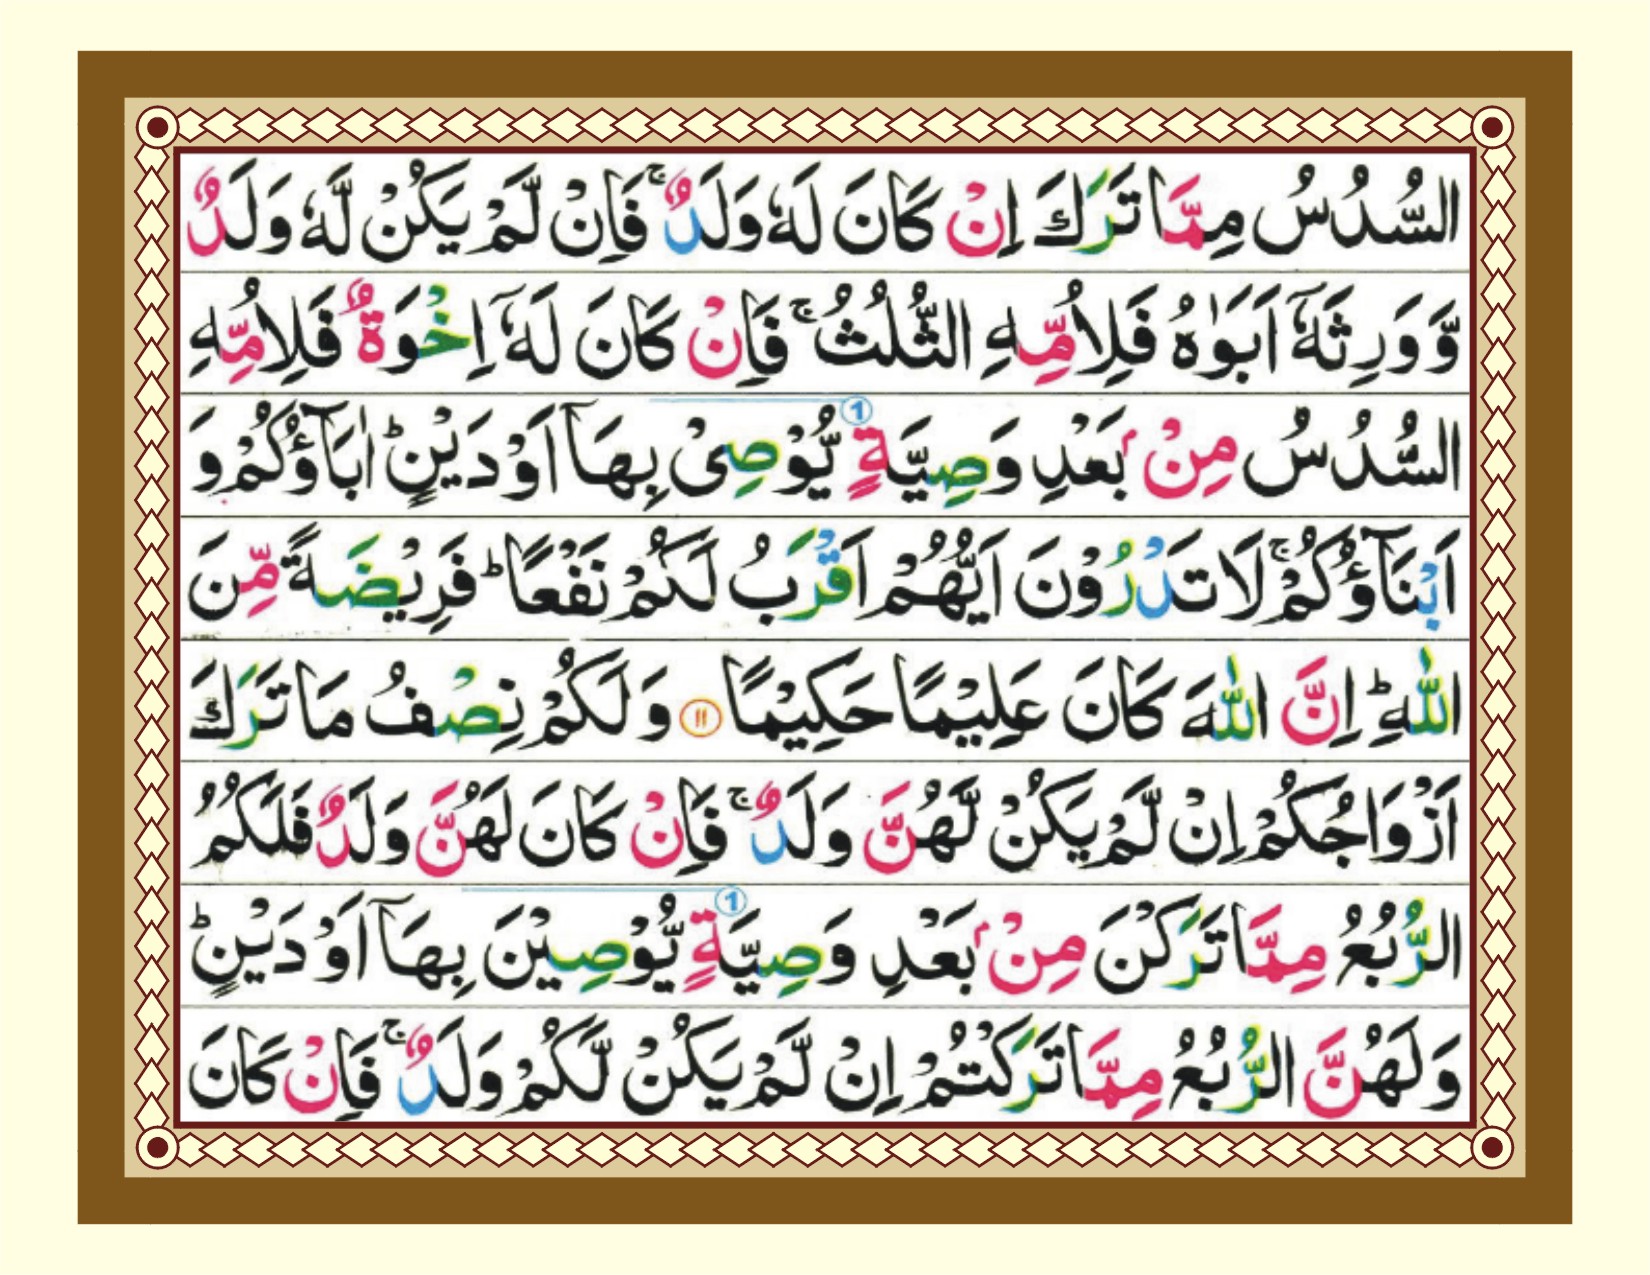 السُّدُسُ مِمَّا تَرَكَ اِنْ كَانَ لَهٗ وَلَدٌ ۚ فَاِنْ لَّمْ يَكُنْ لَّهٗ وَلَدٌ
وَّوَرِثَهٗٓ اَبَوٰهُ فَلِاُمِّهِ الثُّلُثُ ۚ فَاِنْ كَانَ لَهٗٓ اِخْوَةٌ فَلِاُمِّهِ
السُّدُسُ مِنْۢ بَعْدِ وَصِيَّةٍ يُّوْصِىْ بِهَآ اَوْ دَيْنٍ ؕ اٰبَآؤُكُمْ وَ
اَبْنَآؤُكُمْ ۚ لَا تَدْرُوْنَ اَيُّهُمْ اَقْرَبُ لَكُمْ نَفْعًا ؕ فَرِيْضَةً مِّنَ
اللّٰهِ ؕ اِنَّ اللّٰهَ كَانَ عَلِيْمًا حَكِيْمًا ۝۱۱ وَلَكُمْ نِصْفُ مَا تَرَكَ
اَزْوَاجُكُمْ اِنْ لَّمْ يَكُنْ لَّهُنَّ وَلَدٌ ۚ فَاِنْ كَانَ لَهُنَّ وَلَدٌ فَلَكُمُ
الرُّبُعُ مِمَّا تَرَكْنَ مِنْۢ بَعْدِ وَصِيَّةٍ يُّوْصِيْنَ بِهَآ اَوْ دَيْنٍ ؕ
وَلَهُنَّ الرُّبُعُ مِمَّا تَرَكْتُمْ اِنْ لَّمْ يَكُنْ لَّكُمْ وَلَدٌ ۚ فَاِنْ كَانَ